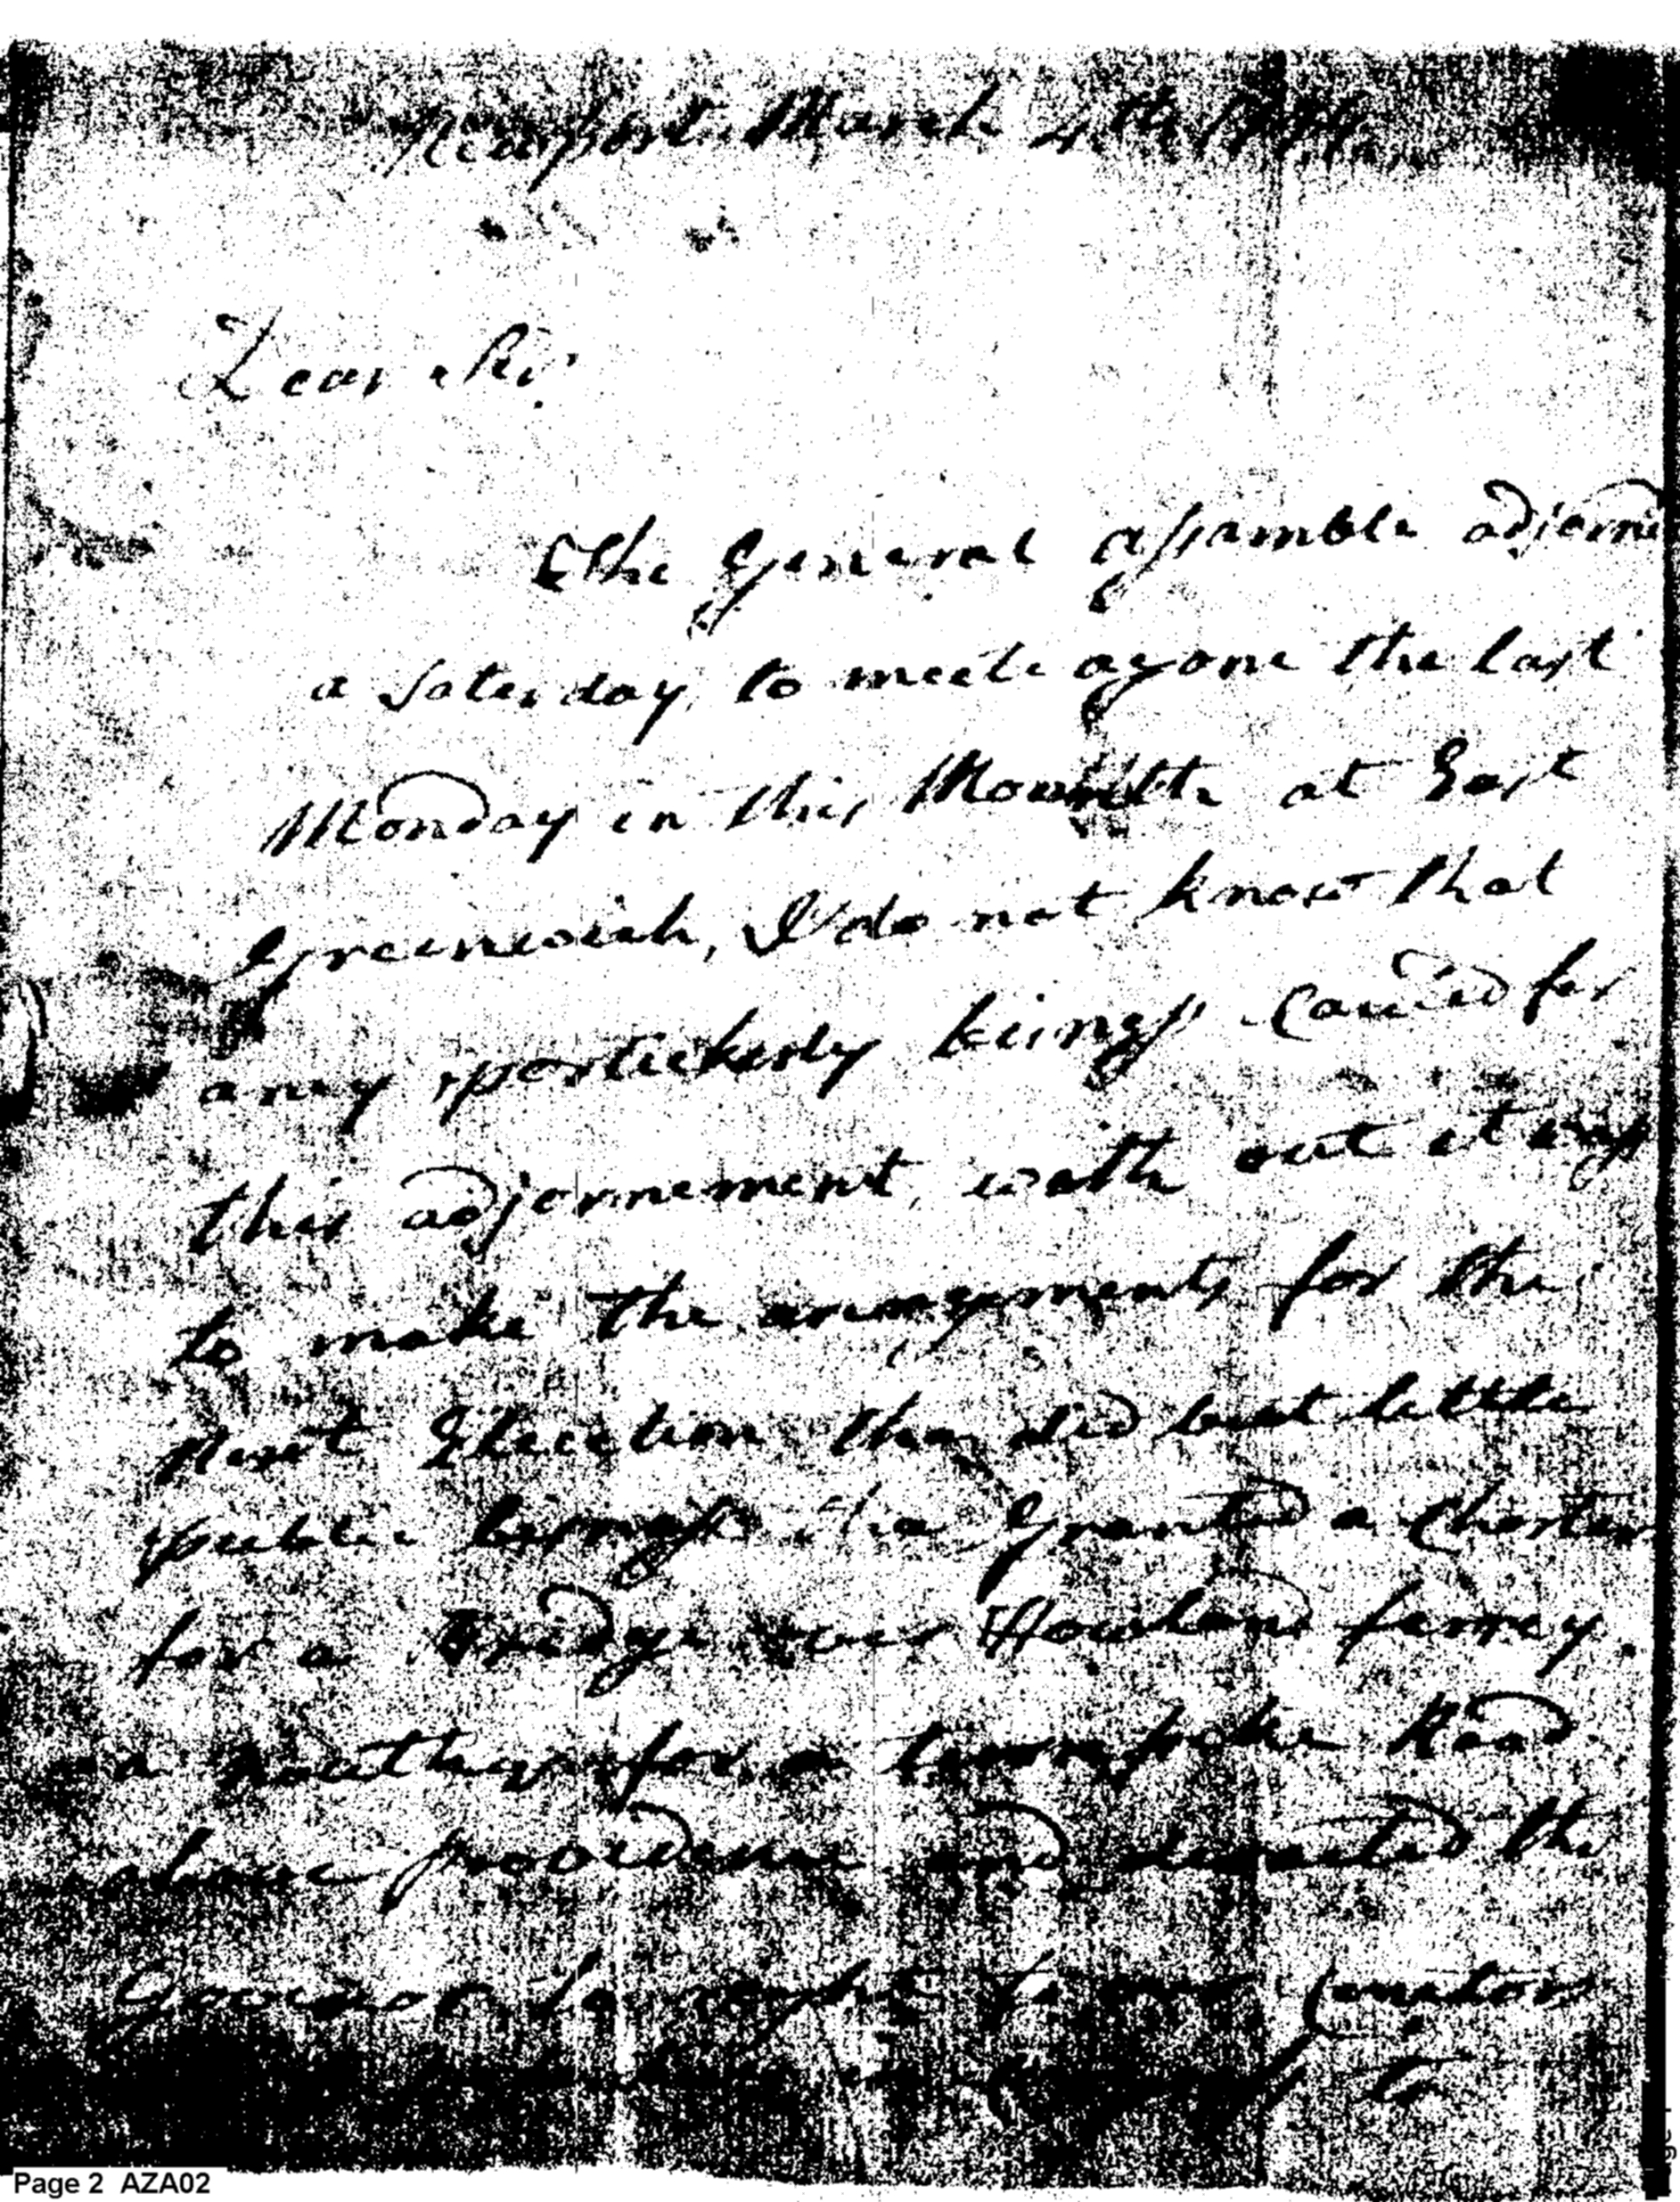 Newport March 4th
Dear Sir
The General assamble adjorne
a Saterday, to meete agane the last
Monday in this Mounth at East
Greenwich, I do not know that
any portickerly bisness caused for
this adjornement, with out it was
to make the arengements for the
Next Election, tha did but little
publi bisness tha Granted a Charter
for a Bridge over Howland ferrey.
a nouther for a turnpike Road
above providence and the
Governor to our Senitors
to
Page 2 AZA02